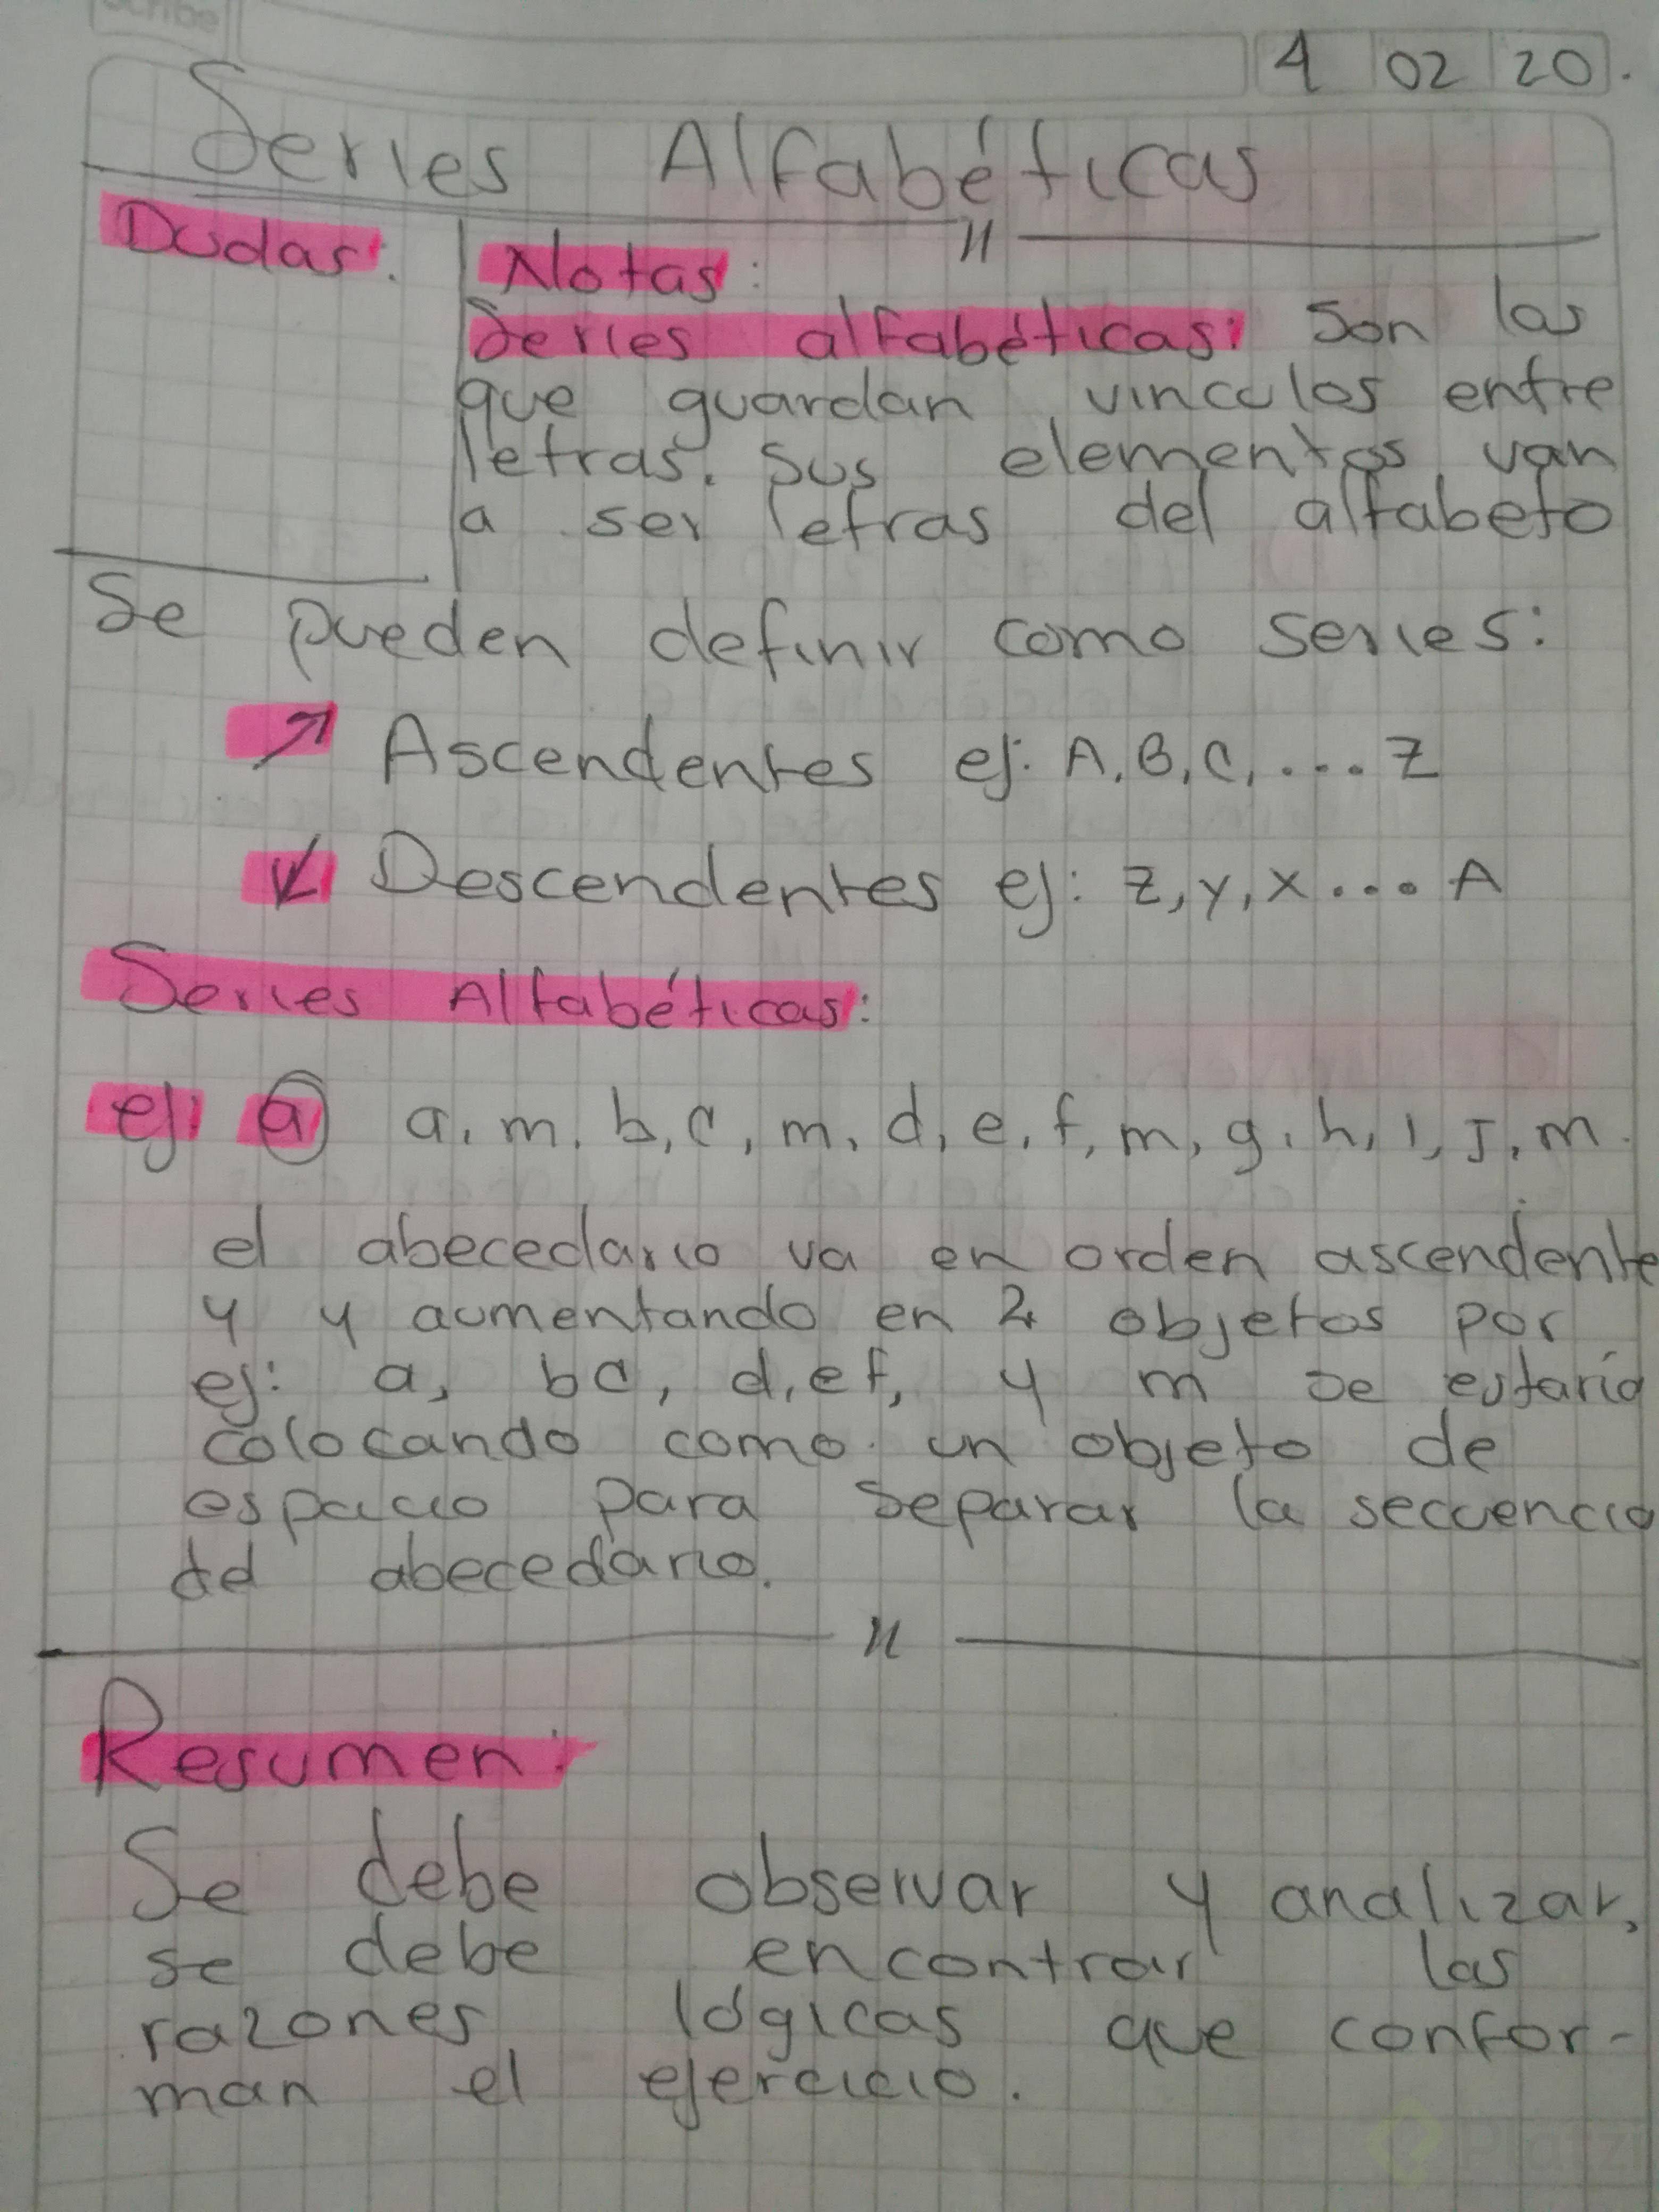 Scribe
4 02 20.
Series Alfabéticas
Dudas:
Notas:
Series alfabéticas: Son las
que guardan vinculos entre
letras. Sus elementos van
a ser letras del alfabeto
Se pueden definir como series:
↗ Ascendentes ej: A, B, C, ... Z
↙ Descendentes ej: Z, y, x ... A
Series Alfabéticas:
ej: a a, m, b, c, m, d, e, f, m, g, h, i, j, m.
el abecedario va en orden ascendente
y y aumentando en 2 objetos por
ej: a, bc, d, ef, y m se estaría
colocando como un objeto de
espacio para separar la secuencia
del abecedario.
Resumen:
Se debe observar y analizar,
se debe encontrar las
razones lógicas que confor-
man el ejercicio.
Platzi